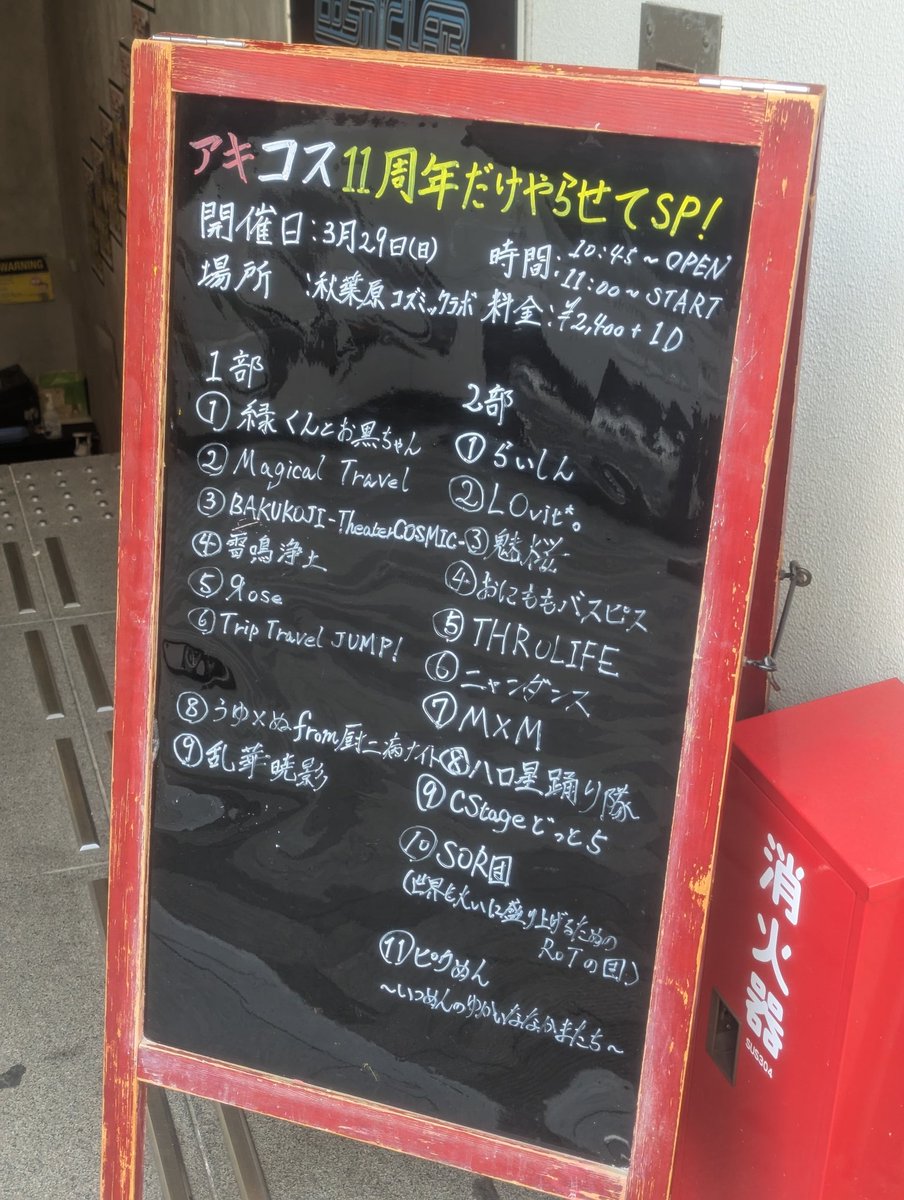 アキコス11周年だけやらせてSP!
開催日:3月29日(日)
時間:10:45~OPEN
11:00~START
場所:秋葉原コズミックラボ
料金:¥2,400+1D
1部
① 緑くんとお黒ちゃん
② Magical Travel
③ BAKUKOJI-TheaterCOSMIC-
④ 雷鳴浄土
⑤ Яose
⑥ Trip Travel JUMP!
⑧ うゆ×ぬfrom厨二病ナイト
⑨ 乱華暁影
2部
① らいしん
② LOvit*。
③ 魅桜
④ おにももバスピス
⑤ THRoLIFE
⑥ ニャンダンス
⑦ M×M
⑧ ハロ星踊り隊
⑨ CStageどっと5
⑩ SOR団
(世界を大いに盛り上げるための
RoTの団)
⑪ ピクめん
~いつめんのゆかいななかまたち~
WARNING
消火器
SUS304